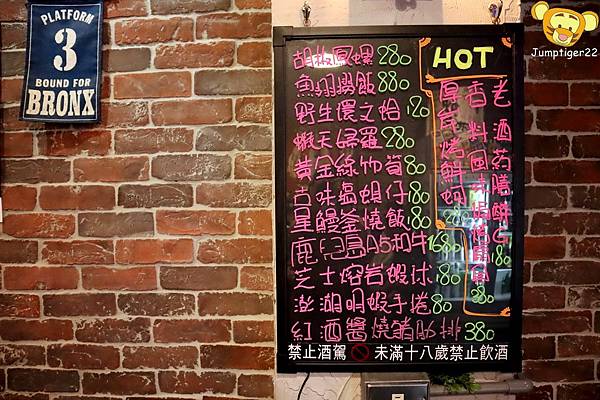 PLATFORM
3
BOUND FOR
BRONX
Jumptiger22
HOT
胡椒鳳螺280
魚翅撈飯880
野生優文蛤120
懶天婦羅280
黃金綠竹筍80
古味蒜蜆仔80
星鰻釜燒飯180
鹿兒島A5和牛1680
芝士熔岩蝦球180
澎湖明蝦手捲80
紅酒醬燒豬肋排380
老酒药膳
香料
厚岸烤鮮蚵
禁止酒駕 未滿十八歲禁止飲酒